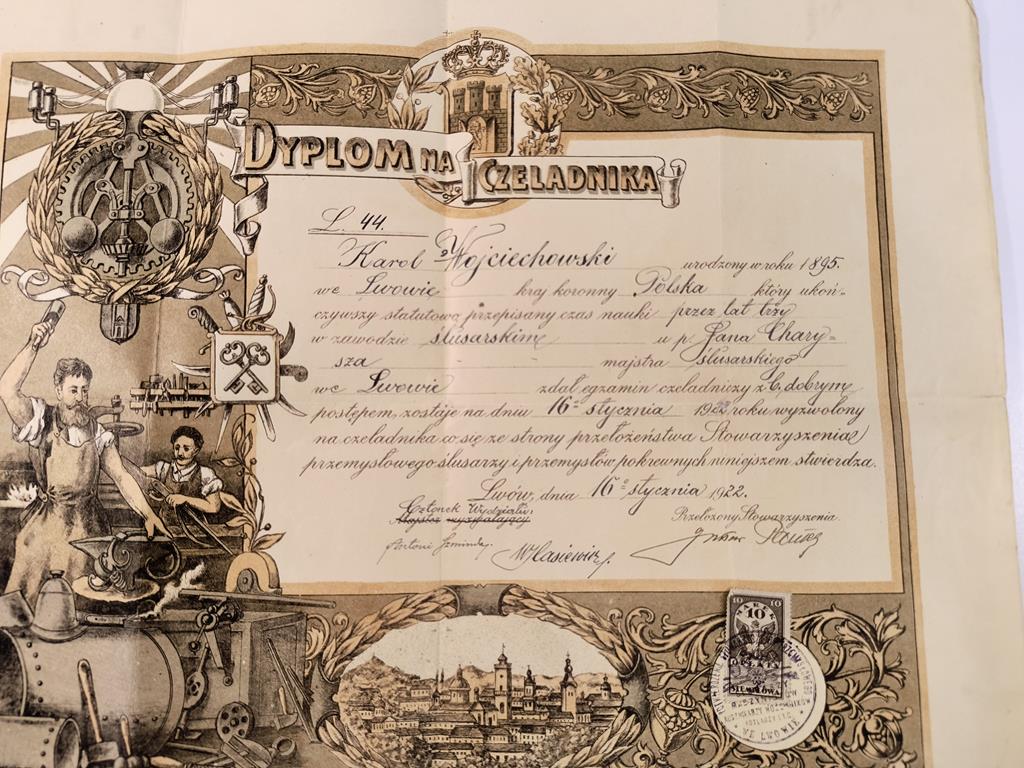 DYPLOM NA CZELADNIKA
L. 44.
Karol Wojciechowski urodzony w roku 1895.
we Lwowie kraj koronny Polska który ukoń-
czywszy statutową przepisany czas nauki przez lat trzy
w zawodzie ślusarskim u p. Jana Chary-
sza majstra ślusarskiego
we Lwowie zdał egzamin czeladniczy z b. dobrym
postępem, zostaje na dniu 16º stycznia 1922 roku wyzwolony
na czeladnika co się ze strony przełożeństwa Stowarzyszenia
przemysłowego ślusarzy i przemysłów pokrewnych niniejszem stwierdza.
Lwów, dnia 16º stycznia 1922.
Członek Wydziału,
Majster wyzwalający Przełożony Stowarzyszenia.
Antoni
10 10
MAREK
10
STEMPLOWA
WE LWOWIE